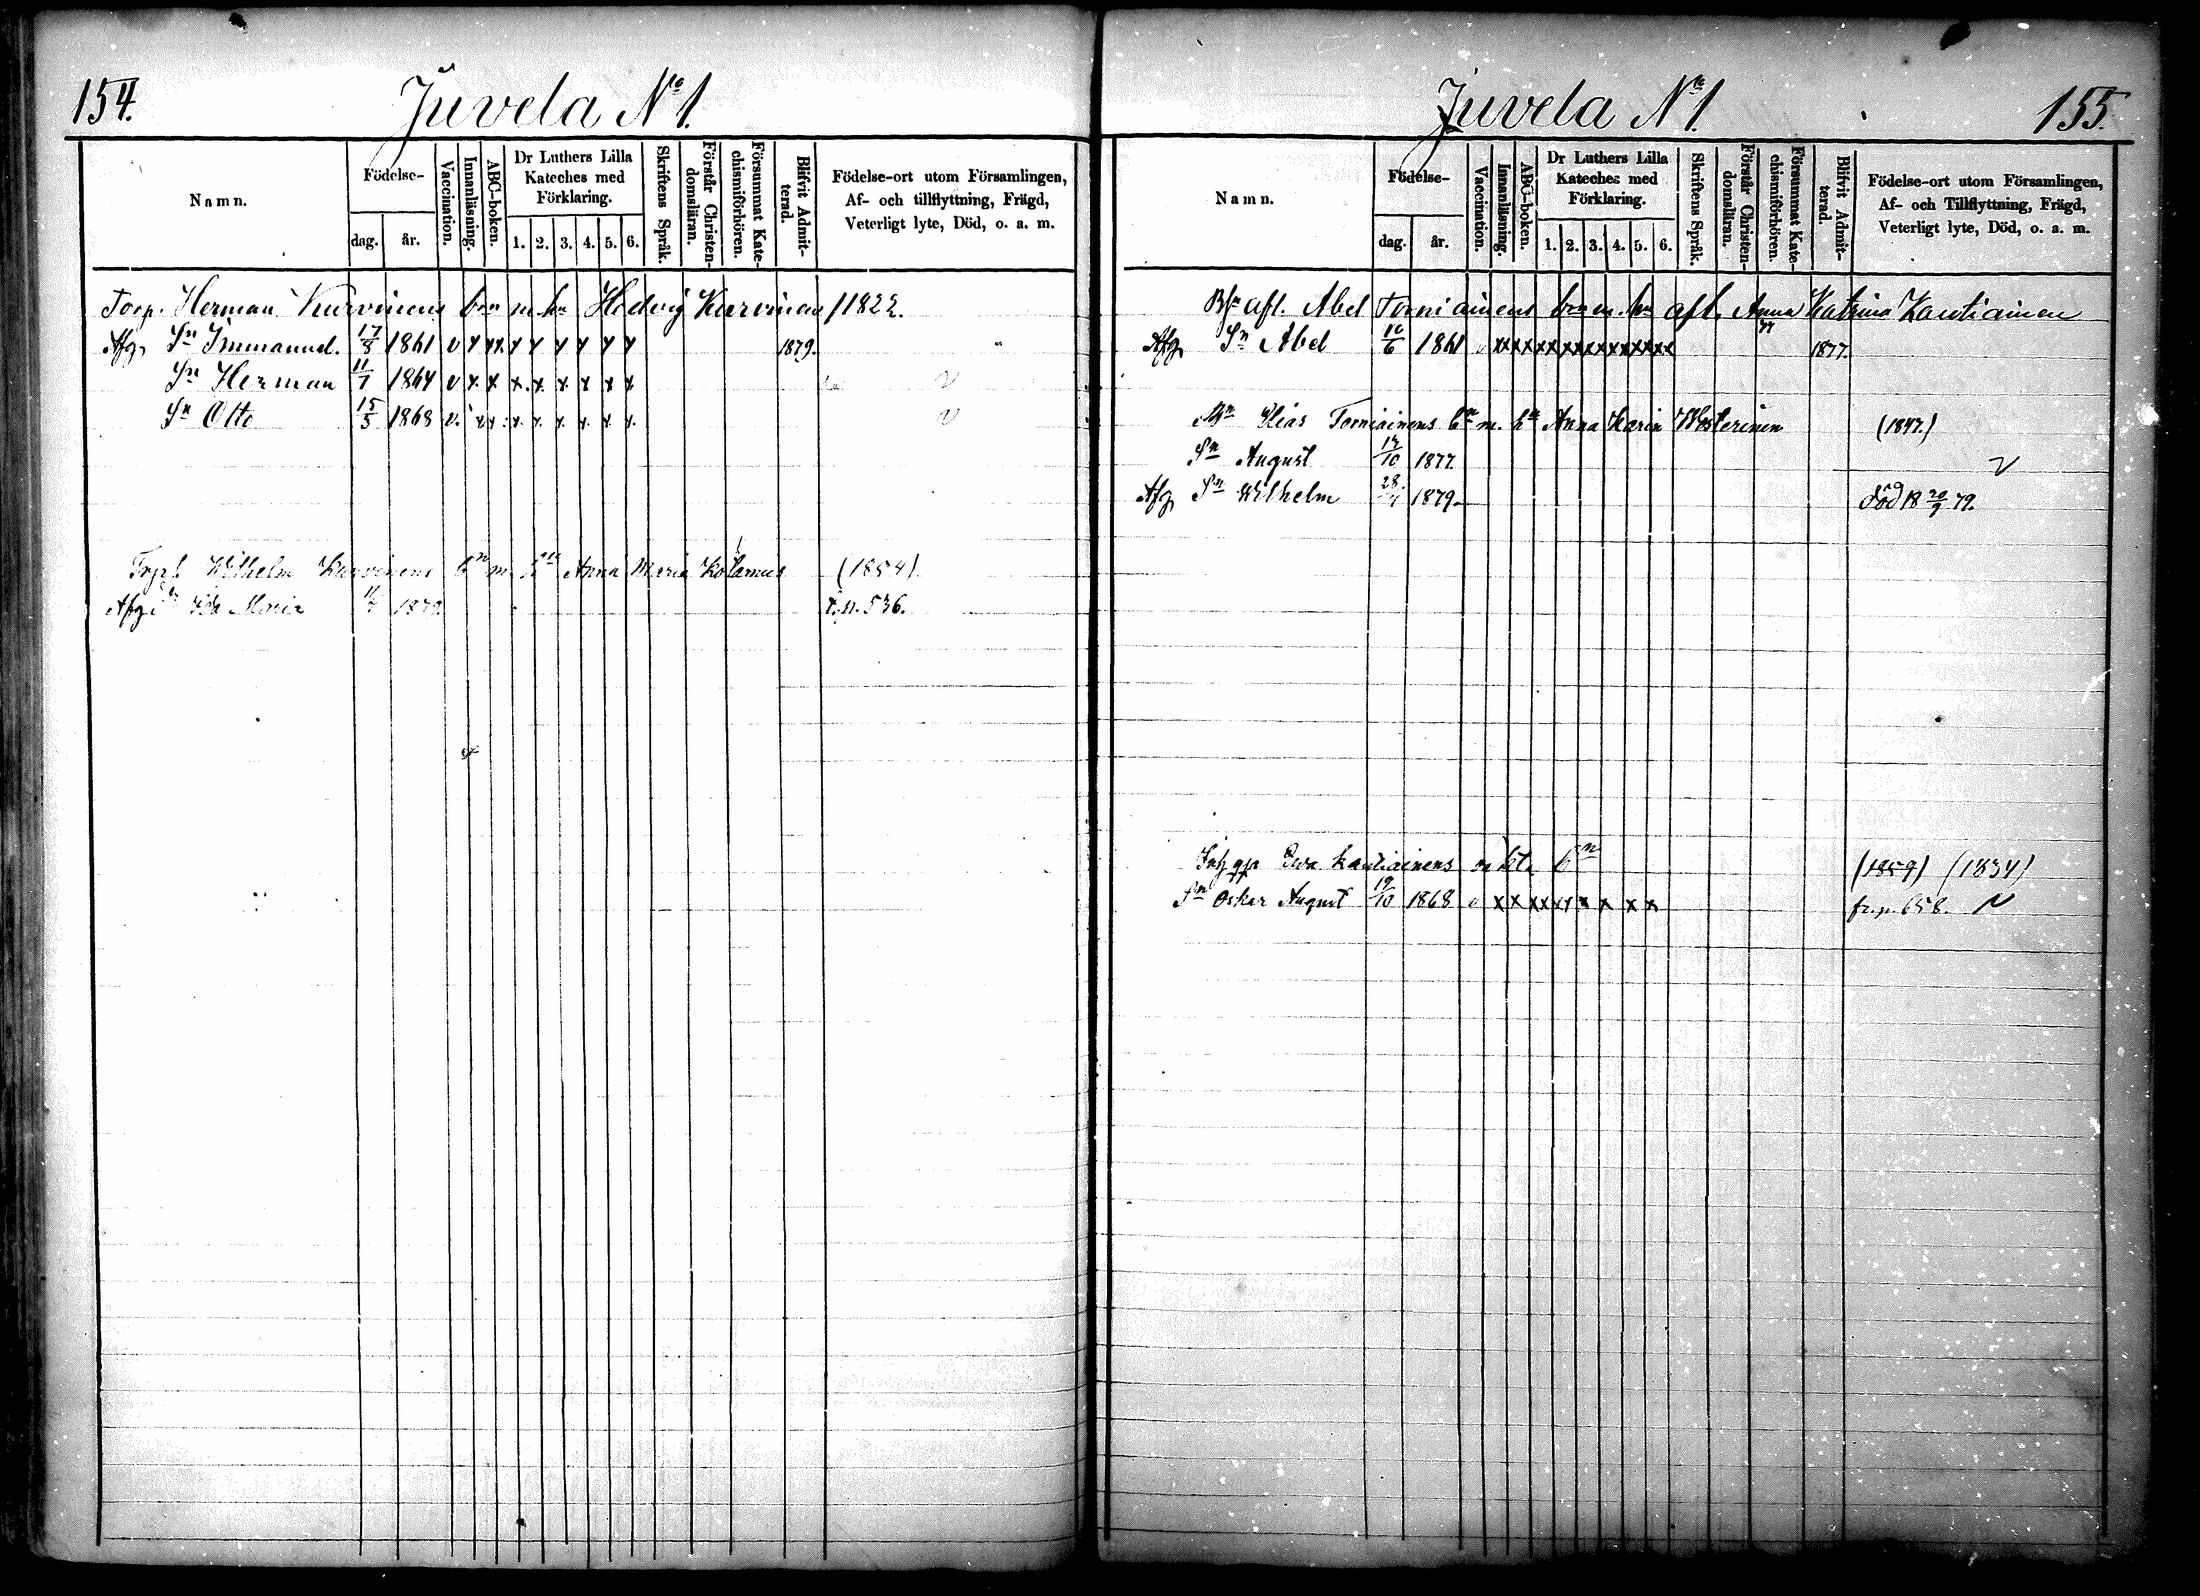 154.
Juvela No 1.
Namn.
Födelse-
dag.
år.
Vaccination.
Innanläsning.
ABC-boken.
Dr Luthers Lilla
Kateches med
Förklaring.
1. 2. 3. 4. 5. 6.
Skriftens Språk.
Förstår Christen-
domsläran.
Försummat Kate-
chismiförhören.
Blifvit Admit-
terad.
Födelse-ort utom Församlingen,
Af- och tillflyttning, Frägd,
Veterligt lyte, Död, o. a. m.
Torp. Herman Kurvinens brn m. hu Hedvig Kurvinen 1822.
Afg. Sn Immanuel. 17/8 1861 v x xx. x x x x x x 1879.
Sn Herman 11/7 1864 v x x x. x. x x x x v
Sn Otto 15/5 1868 v. x x. x. x. x. x x x. v
Wilhelm Kurvinens bn m. hu Anna Maria (1854).
Afg. Ida Maria 1879. t. n. 536.
155.
Juvela No 1.
Namn.
Födelse-
dag.
år.
Vaccination.
Innanläsning.
ABC-boken.
Dr Luthers Lilla
Kateches med
Förklaring.
1. 2. 3. 4. 5. 6.
Skriftens Språk.
Förstår Christen-
domsläran.
Försummat Kate-
chismiförhören.
Blifvit Admit-
terad.
Födelse-ort utom Församlingen,
Af- och Tillflyttning, Frägd,
Veterligt lyte, Död, o. a. m.
afl. Abel Torniainens brn m. hu afl. Anna Katrina Kautiainen
Afg. Sn Abel 16/6 1861 v xxxxxxxxxxxxx 1877.
Elias Torniainens bn m. hu Anna Karin Westerinen (1847.)
Sn August 1877. v
Afg. Sn Wilhelm 1879. död 18 20/9 79.
Ewa Kautiainens oäkta bn (1859) (1834)
Sn Oskar August 19/10 1868 v x x x x x x x x x x fr. p. 658. v